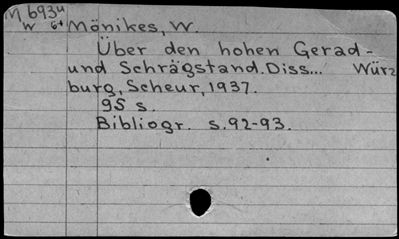 M 693u
W 64 Mönikes, W.
Über den hohen Gerad-
und Schrägstand. Diss... Würz
burg, Scheur, 1937.
95 s.
Bibliogr. s. 92-93.